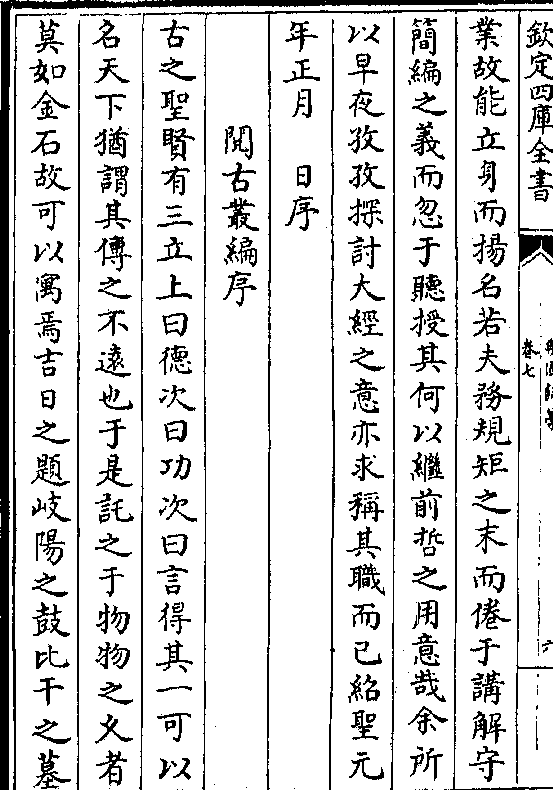 欽定四庫全書
卷七
六
業故能立身而揚名若夫務規矩之末而倦于講解守
簡編之義而忽于聽授其何以繼前哲之用意哉余所
以早夜孜孜探討大經之意亦求稱其職而已紹聖元
年正月　日序
閱古叢編序
古之聖賢有三立上曰德次曰功次曰言得其一可以
名天下猶謂其傳之不遠也于是託之于物物之久者
莫如金石故可以寓焉吉日之題岐陽之鼓比干之墓